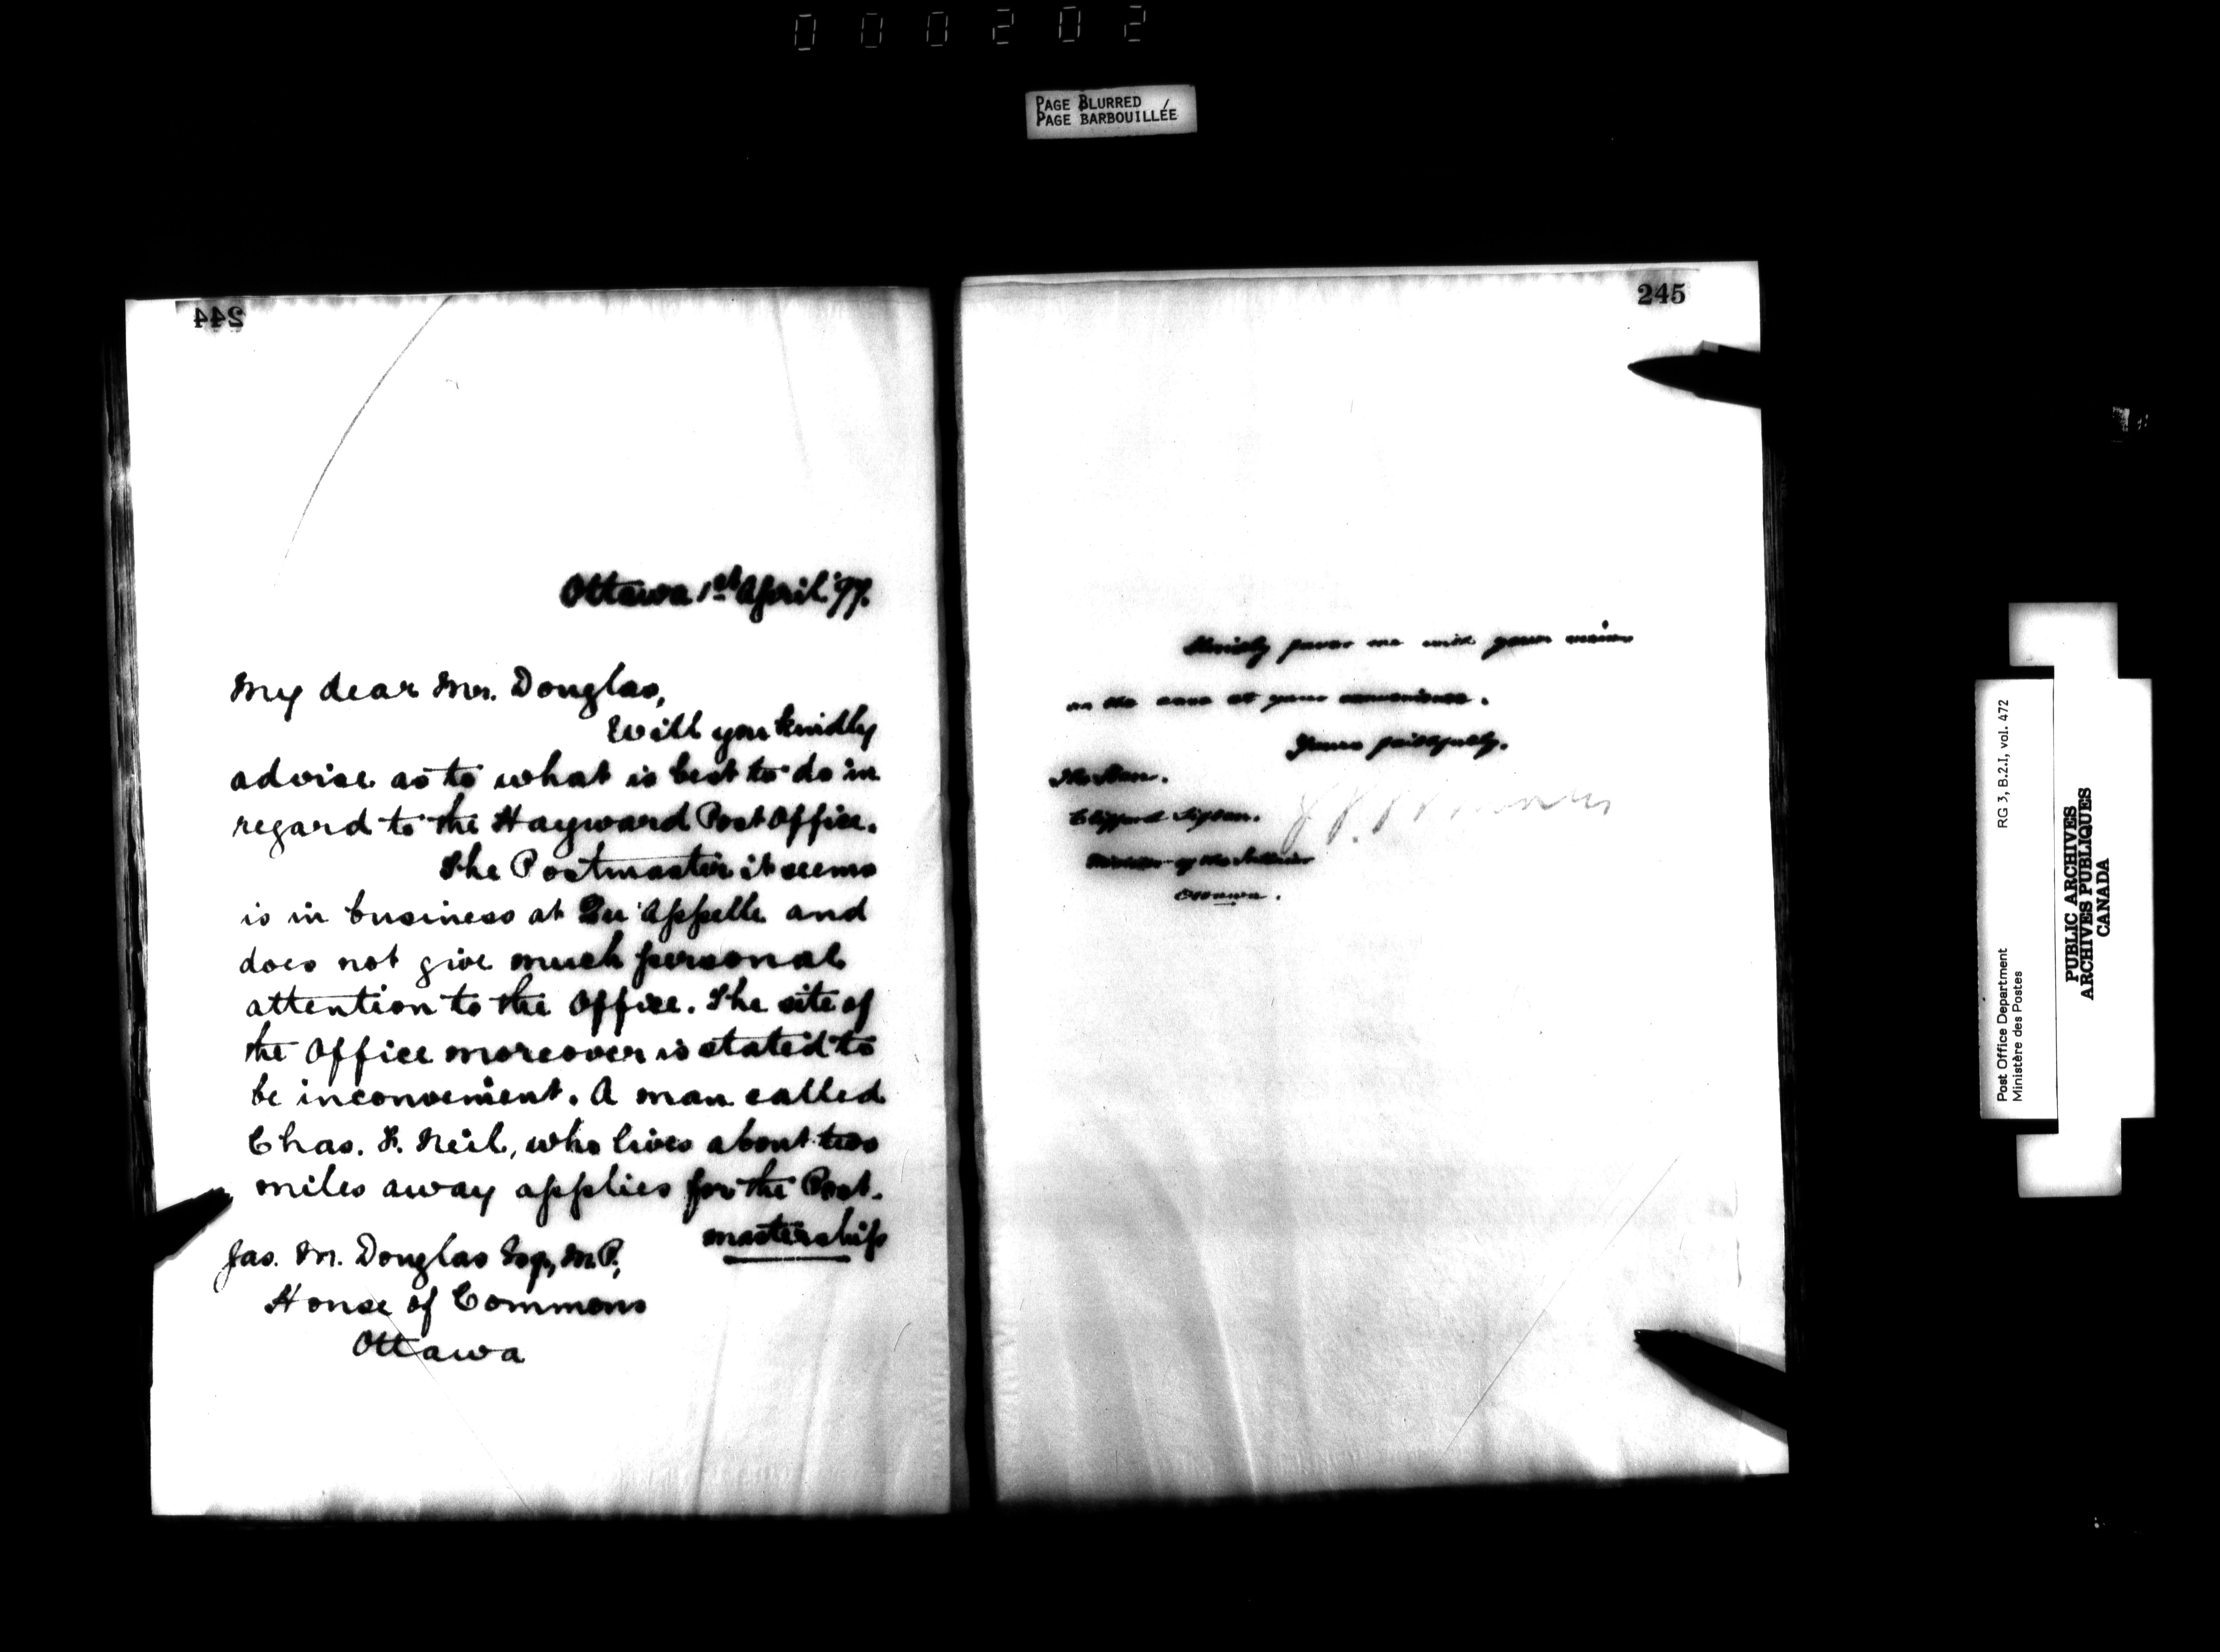 000202
PAGE BLURRED
PAGE BARBOUILLÉE
244
Ottawa 1st April '97.
My dear Mr. Douglas,
Will you kindly
advise as to what is best to do in
regard to the Hayward Post Office.
The Postmaster it seems
is in business at Qu'Appelle and
does not give much personal
attention to the Office. The site of
the Office moreover is stated to
be inconvenient. A man called
Chas. F. Neil, who lives about two
miles away applies for the Post-
mastership
Jas. M. Douglas Esq, M.P.,
House of Commons
Ottawa
245
Kindly favor me with your views
on the case at your convenience.
Yours faithfully.
The Hon.
Clifford Sifton.
Minister of the Interior
Ottawa.
Post Office Department
Ministère des Postes
RG 3, B.2.I, vol. 472
PUBLIC ARCHIVES
ARCHIVES PUBLIQUES
CANADA